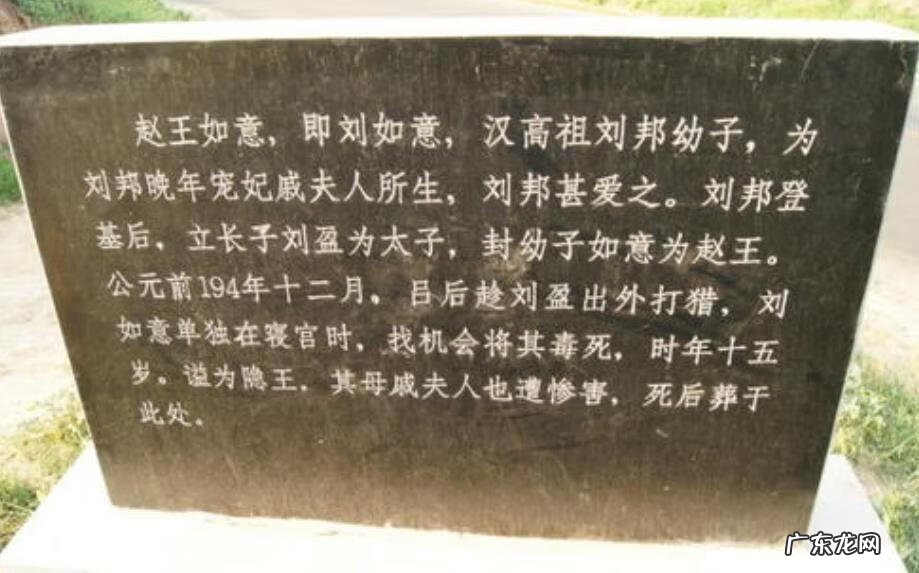 赵王如意，即刘如意，汉高祖刘邦幼子，为
刘邦晚年宠妃戚夫人所生，刘邦甚爱之。刘邦登
基后，立长子刘盈为太子，封幼子如意为赵王。
公元前194年十二月，吕后趁刘盈出外打猎，刘
如意单独在寝宫时，找机会将其毒死，时年十五
岁。谥为隐王，其母戚夫人也遭惨害，死后葬于
此处。
广东龙网